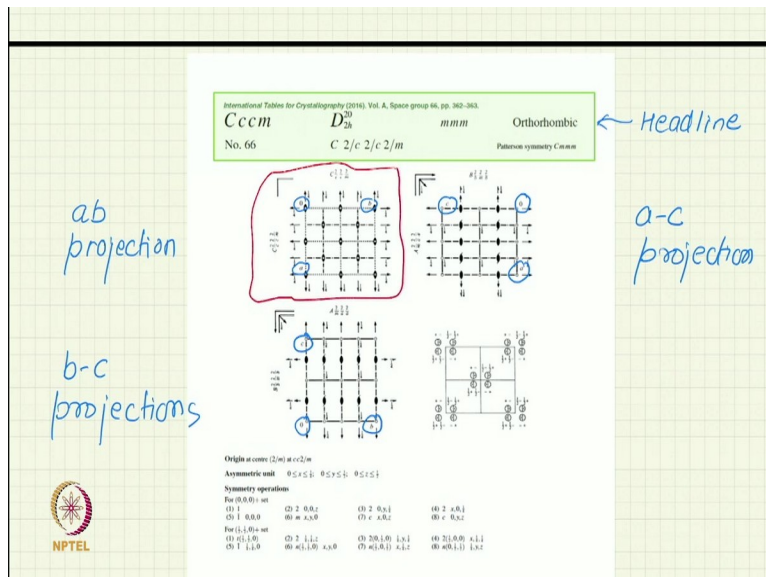 International Tables for Crystallography (2016). Vol. A, Space group 66, pp. 362–363.
Cccm D²⁰₂ₕ mmm Orthorhombic
No. 66 C 2/c 2/c 2/m Patterson symmetry Cmmm
← Headline
ab
projection
a-c
projection
b-c
projections
Origin at centre (2/m) at cc2/m
Asymmetric unit
Symmetry operations
For (0,0,0)+ set
(1) 1 (2) 2 0,0,z (3) 2 0,y,¼ (4) 2 x,0,¼
(5) 1̄ 0,0,0 (6) m x,y,0 (7) c x,0,z (8) c 0,y,z
For (½,½,0)+ set
(1) t(½,½,0) (2) 2 ¼,¼,z (3) 2(0,½,0) ¼,y,¼ (4) 2(½,0,0) x,¼,¼
(5) 1̄ ¼,¼,0 (6) n(½,½,0) x,y,0 (7) n(½,0,½) x,¼,z (8) n(0,½,½) ¼,y,z
NPTEL